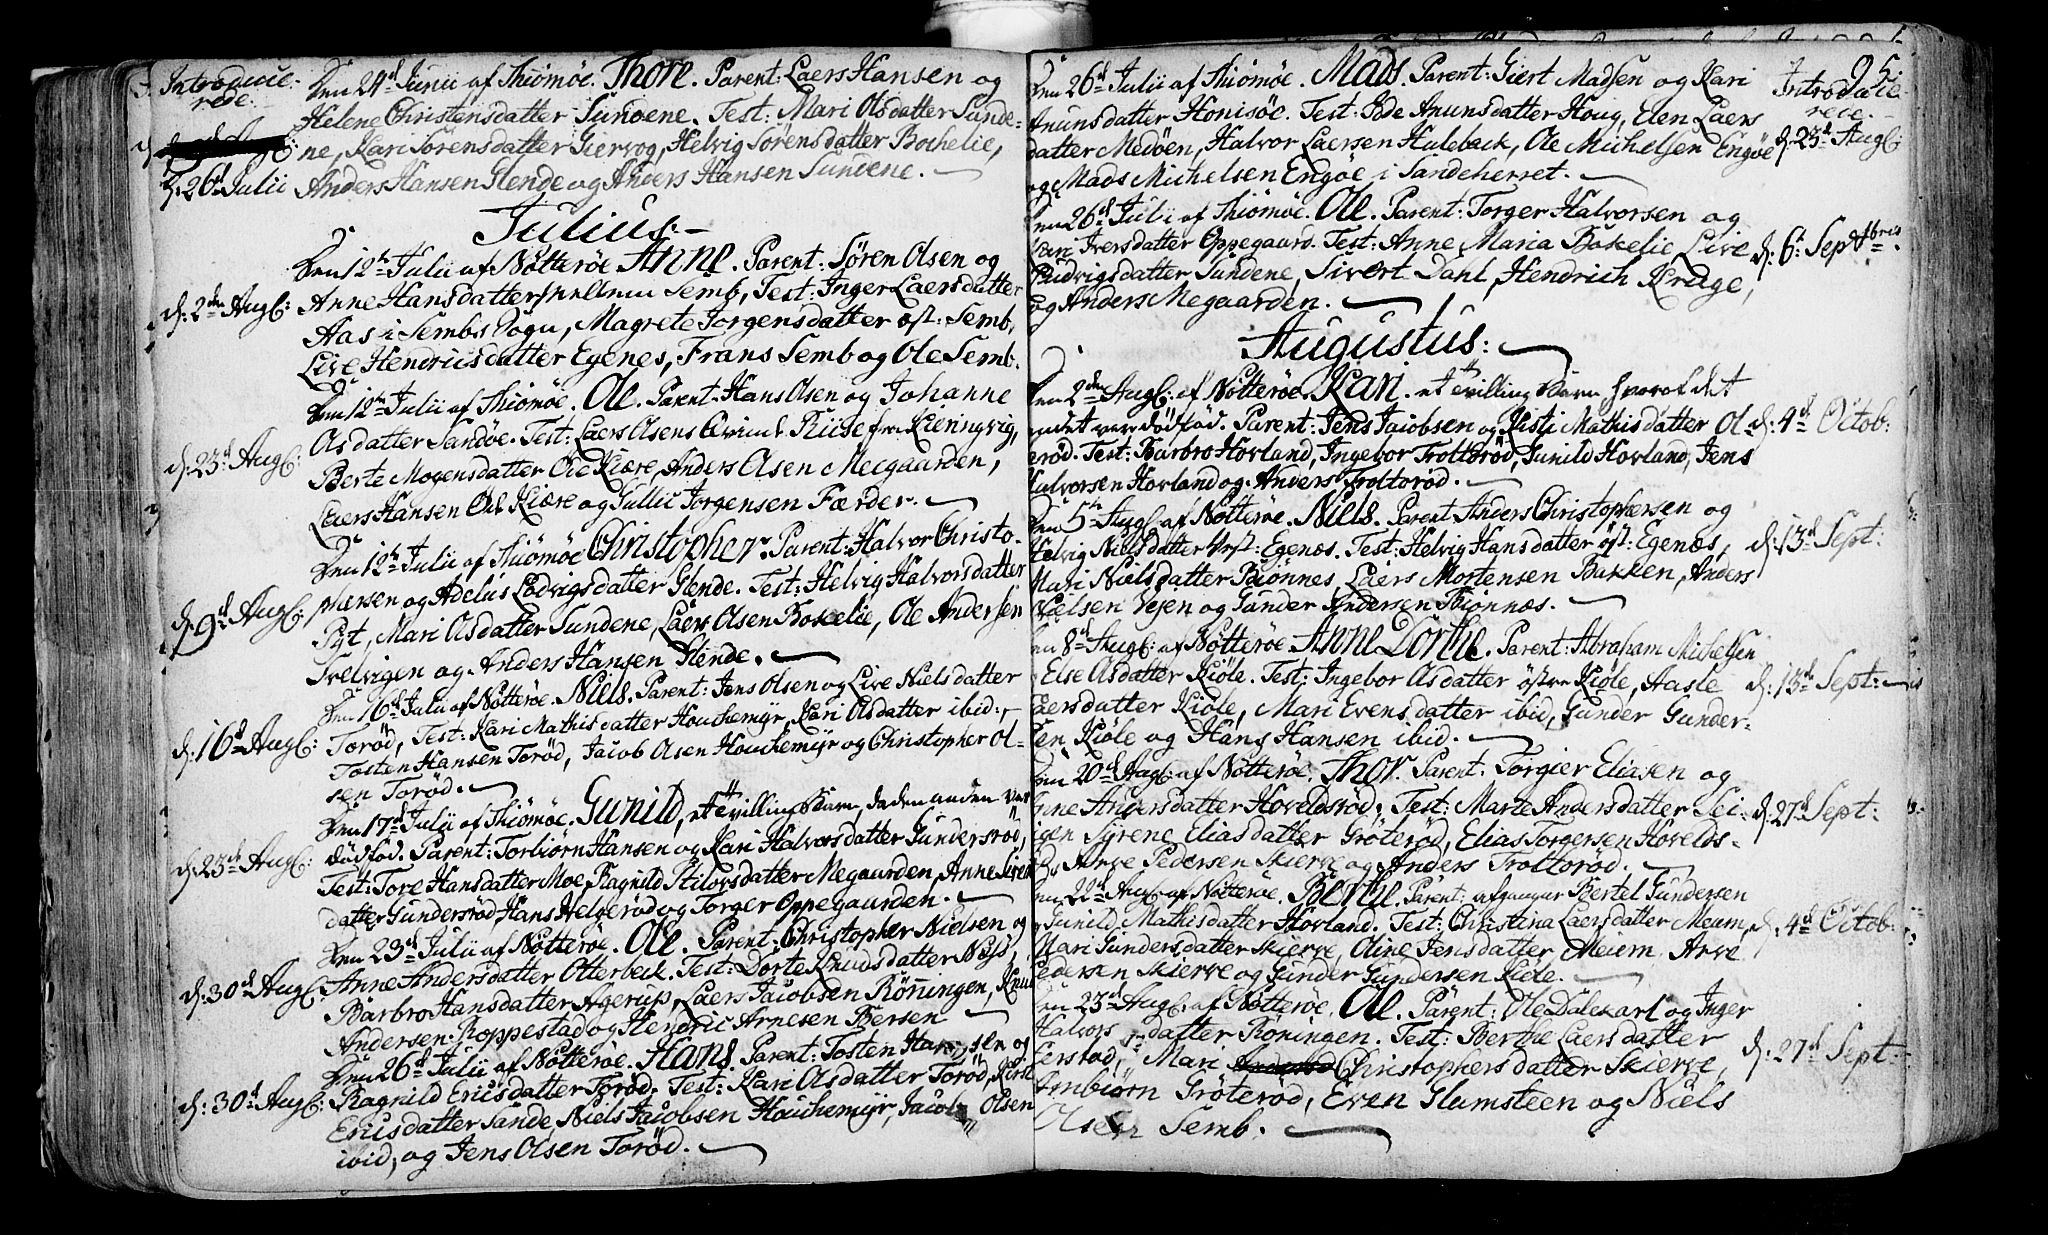 Introducerede.
Den 24d Junii af Thiömöe. Thore. Parent: Laers Hansen og
Helene Christensdatter Sundene. Test: Mari Olsdatter Sunde-
ne, Kari Sörensdatter Giervog, Helvig Sörensdatter Bochelie,
d: 26d Julii Anders Hansen Glende og Anders Hansen Sundene.
Julius:
Den 12te Julii af Nötteröe Anne. Parent: Sören Olsen og
d: 2den Aug: Anne Hansdatter Semb, Test: Inger Laersdatter
Aas i Sembs Sogn, Magrete Jorgensdatter öst: Semb,
Live Hendricsdatter Egenes, Frans Semb og Ole Semb.
Den 12te Julii af Thiömöe. Ole. Parent: Hans Olsen og Johanne
Olsdatter Sandöe. Test: Laers Olsens Qvinde Riise fra Kieringvig,
d: 23d Aug: Berte Mogensdatter Ole Kiære, Anders Olsen Meegaarden,
Laers Hansen Ole Kiære og Gullic Jorgensen Færder.
Den 12te Julii af Thiömöe Christopher. Parent: Halvor Christo-
d: 9d Aug: phersen og Adelus Lodvigsdatter Glende. Test: Helvig Halvorsdatter
Pyt, Mari Olsdatter Sundene, Laers Olsen Bokelie, Ole Andersen
Svelvigen og Anders Hansen Glende.
Den 16d Julii af Nötteröe. Niels. Parent: Jens Olsen og Live Nielsdatter
d: 16d Aug: Toröd, Test: Kari Mathisdatter Houchemyr, Kari Olsdatter ibid:
Tosten Hansen Toröd, Jacob Olsen Houchemyr og Christopher Ol-
sen Toröd.
Den 17d Julii af Thiömöe. Gunild, et tvilling Barn, da den anden var
d: 23de Aug: dödfod. Parent: Torbiörn Hansen og Kari Halvorsdatter Gundersröd,
Test: Tore Hansdatter Moe, Ragnild Stilovsdatter Megaarden, Anne Ivers
datter Gundersröd, Hans Helgeröd og Torger Oppegaarden.
Den 23d Julii af Nötteröe. Ole. Parent: Christopher Nielsen og
d: 30d Aug: Anne Andersdatter Otterbeck. Test: Dorte Knudsdatter Næss,
Barbro Hansdatter Agerup, Laers Jacobsen Röningen, Knud
Andersen Roppestad og Hendric Arnesen Bersen
Den 26d Julii af Nötteröe. Hans. Parent: Tosten Hansen og
d: 30d Aug: Ragnild Ericsdatter Toröd. Test: Kari Olsdatter Toröd, Kirsti
Ericsdatter Sande, Niels Jacobsen Houchemyr, Jacob Olsen
ibid, og Jens Olsen Toröd.
95
Introducierede.
Den 26d Julii af Thiömöe. Mads. Parent: Giert Madsen og Kari
Anunsdatter Honisöe. Test: Ide Anunsdatter Houg, Elen Laers
datter Medöen, Halvor Laersen Huleback, Ole Michelsen Engöe d: 23d Aug:
og Mads Michelsen Engöe i Sandeherret.
Den 26d Julii af Thiömöe. Ole. Parent: Torger Halvorsen og
Kari Iversdatter Oppegaard. Test: Anne Maria Bokelie, Live d: 6t Septbris
Ludvigsdatter Sundene, Sivert Dahl, Hendrich Krage,
og Anders Megaarden.
Augustus:
Den 2den Aug: af Nötteröe. Kari. et tvilling Barn, hvoraf det
andet var dödfod. Parent: Jens Jacobsen og Kisti Mathisdatter Ol d: 4d Octob:
eröd. Test: Barbro Hovland, Ingebor Troltöröd, Gunild Hovland, Jens
Halvorsen Hovland og Anders Troltoröd.
Den 5te Aug: af Nötteröe. Niels. Parent. Anders Christophersen og
Helvig Nielsdatter Vest: Egenæs. Test: Helvig Hansdatter öst: Egenæs, d: 13d Sept:
Mari Nielsdatter Biönnes, Laers Mortensen Bakken, Anders
Nielsen Vejen og Gunder Andersen Biönnæs.
Den 8d Aug: af Nötteröe Anne Dorthe. Parent: Abraham Michelsen
Else Olsdatter Kiöle. Test: Ingebor Olsdatter östre Kiöle, Aasle d: 13d Sept:
Laersdatter Kiöle, Mari Evensdatter ibid, Gunder Gunder-
sen Kiöle og Hans Hansen ibid.
Den 20d Aug: af Nötteröe. Thor. Parent: Torgier Eliasen og
Anne Andersdatter Hoveldsröd. Test: Marte Andersdatter Sei- d: 27d Sept:
gen Syrene Eliasdatter Gröteröd, Elias Torgersen Hovelds-
Arve Pedersen Skierve og Anders Troltoröd.
Den 22d Aug: af Nötteröe. Berthe. Parent: afgangne Bertel Gundersen
Gunild Mathisdatter Hovland. Test: Christina Laersdatter Meum, d: 4d Octob:
Mari Gundersdatter Skierve, Oline Jensdatter Meium. Arve
Pedersen Skierve og Gunder Gundersen Kiöle.
Den 23d Aug: af Nötteröe. Ole. Parent: Ole Dalekarl og Inger
Halvorsdatter Röningen. Test: Berthe Laersdatter
erstad, Mari Christophersdatter Skierve, d: 27d Sept:
Ambiörn Gröteröd, Even Glumsteen og Niels
Olsen Semb.